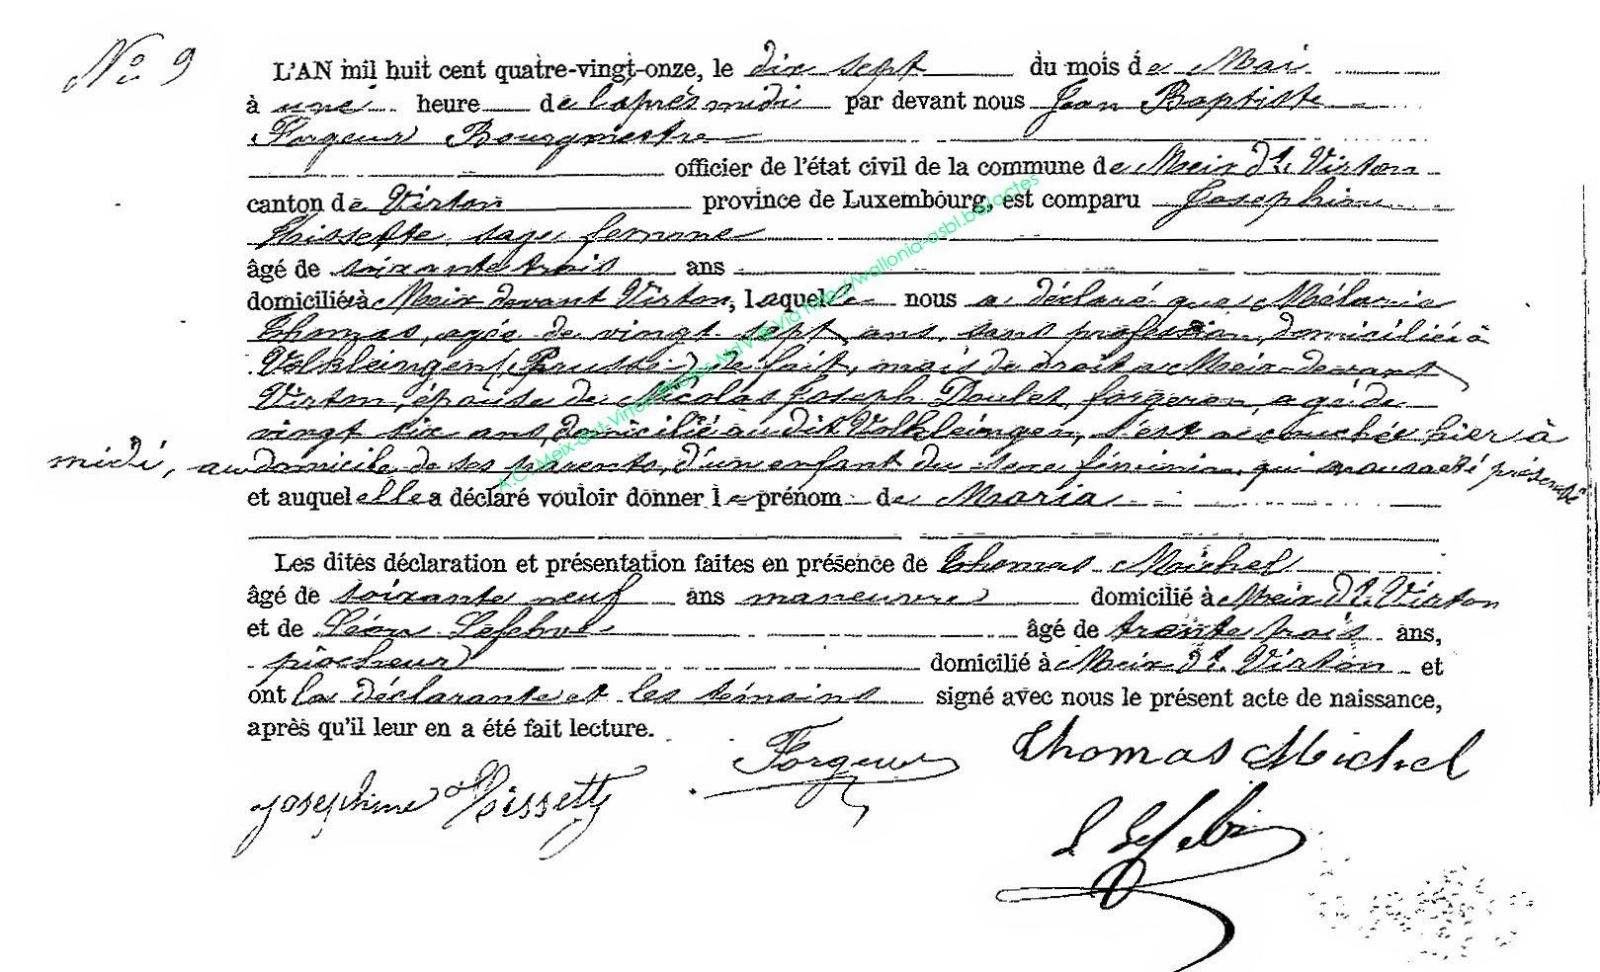 No 9
L'AN mil huit cent quatre-vingt-onze, le dix sept du mois de Mai
à une heure de l'après midi par devant nous Jean Baptiste
Forgeur Bourgmestre
officier de l'état civil de la commune de Meix dt. Virton
canton de Virton province de Luxembourg, est comparu Josephine
sage femme
âgé de soixante trois ans
domiciliée à Meix devant Virton, laquelle nous a déclaré que Mélanie
Thomas, agée de vingt sept ans, sans profession, domiciliée à
Volkleingen (Prusse) de fait, mais de droit à Meix-devant
Virton, épouse de Nicolas Joseph Doulet, forgeron, agé de
vingt six ans, domicilié au dit Volkleingen, s'est accouchée hier à
midi, au domicile de ses parents, d'un enfant du sexe féminin, qui nous a été présenté
et auquel elle a déclaré vouloir donner le prénom de Maria
Les dites déclaration et présentation faites en présence de Thomas Michel
âgé de soixante neuf ans manœuvre domicilié à Meix dt. Virton
et de Léon Lefebvre âgé de trente trois ans,
piocheur domicilié à Meix dt. Virton et
ont la déclarante et les témoins signé avec nous le présent acte de naissance,
après qu'il leur en a été fait lecture.
Forgeur Thomas Michel
Josephine
L Lefebvre
A.C. Meix-dvt-Virton via http://wallonia-asbl.be/actes